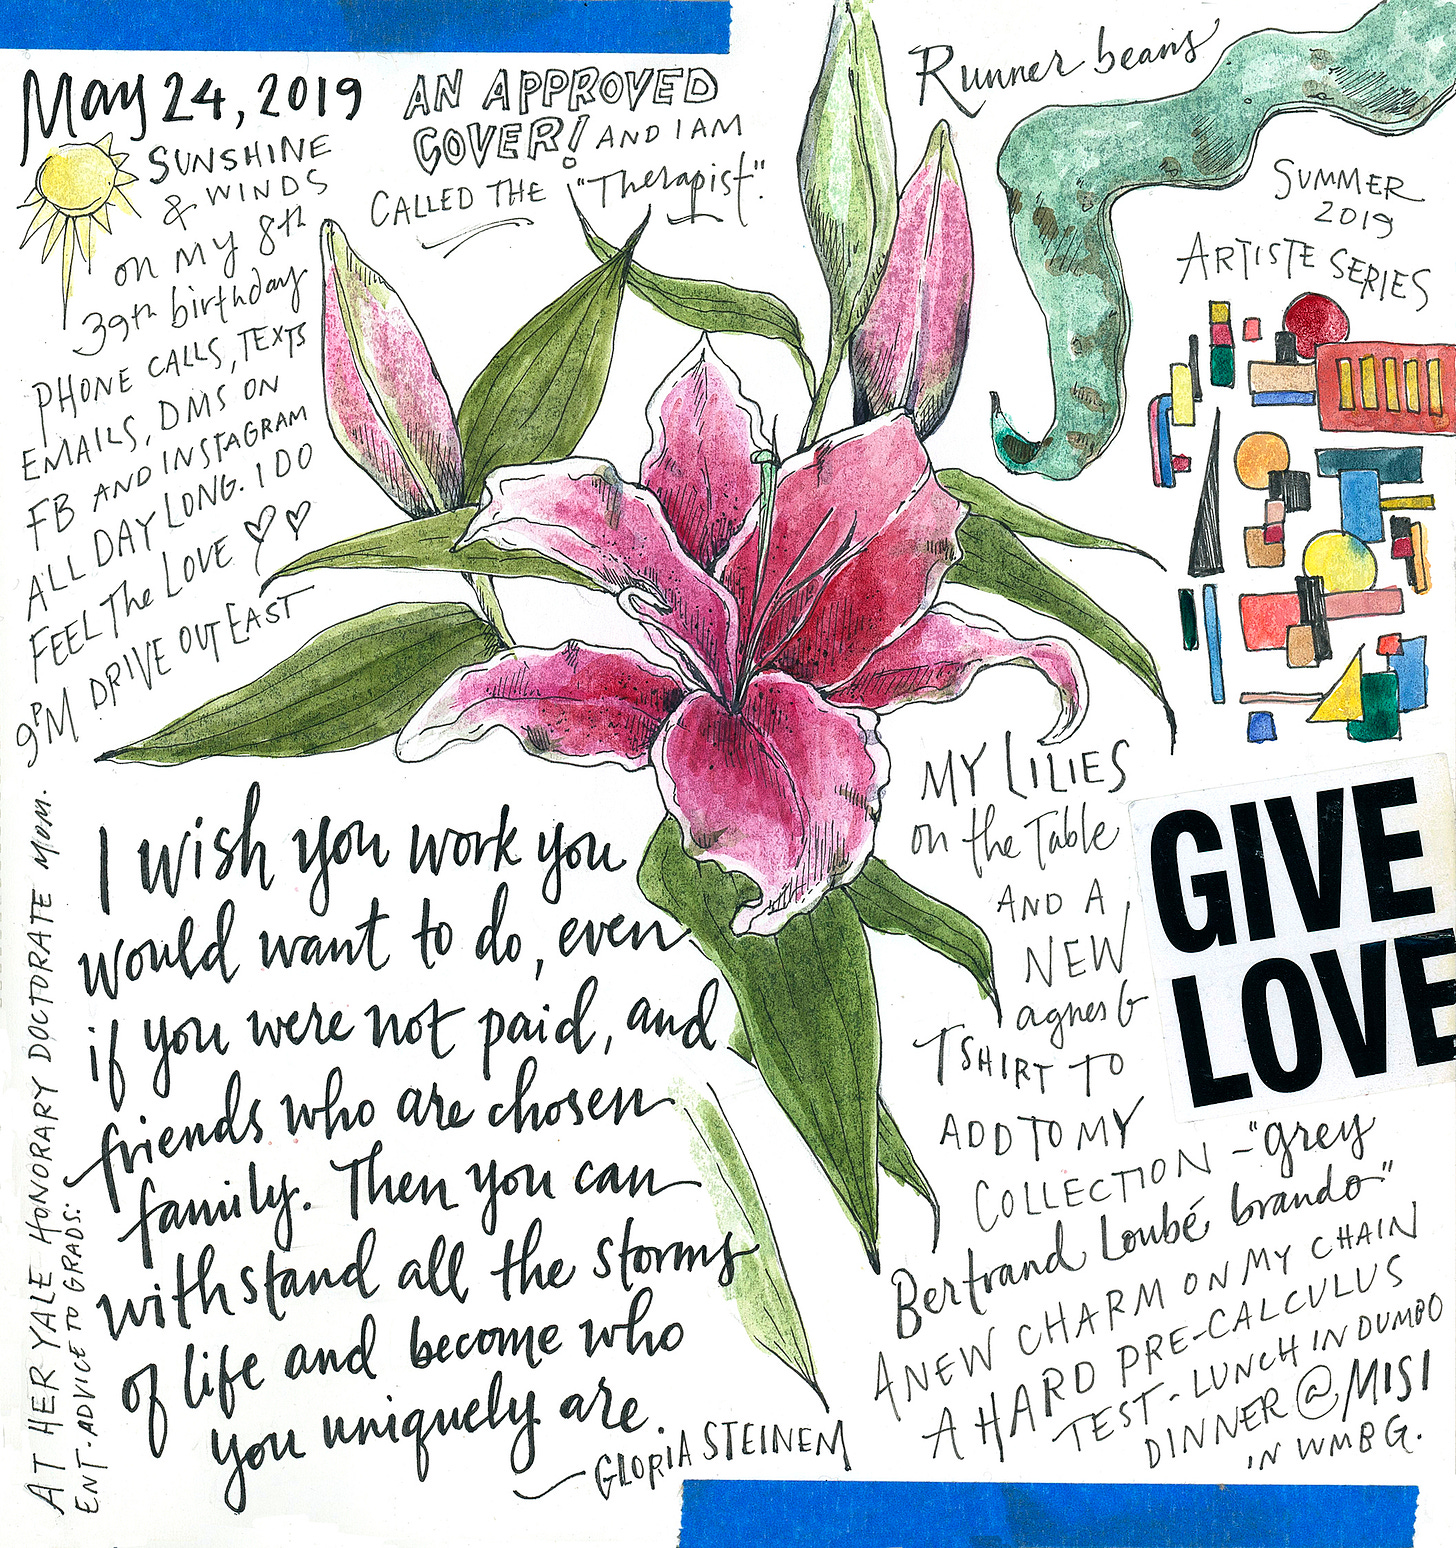 May 24, 2019
SUNSHINE
& WINDS
on my 8th
39th birthday
PHONE CALLS, TEXTS
EMAILS, DMS ON
FB AND INSTAGRAM
ALL DAY LONG. I DO
FEEL The LOVE
9PM DRIVE OUT EAST
AN APPROVED
COVER! AND I AM
CALLED THE "Therapist".
Runner beans
SUMMER
2019
ARTISTE SERIES
I wish you work you
would want to do, even
if you were not paid, and
friends who are chosen
family. Then you can
withstand all the storms
of life and become who
you uniquely are.
— GLORIA STEINEM
AT HER YALE HONORARY DOCTORATE MOM.
ENT. ADVICE TO GRADS:
MY LILIES
on the Table
AND A
NEW
agnes b
TSHIRT TO
ADD TO MY
COLLECTION - "grey
Bertrand Loubé brando"
A NEW CHARM ON MY CHAIN
A HARD PRE-CALCULUS
TEST - LUNCH IN DUMBO
DINNER @ MISI
IN WMBG.
GIVE
LOVE